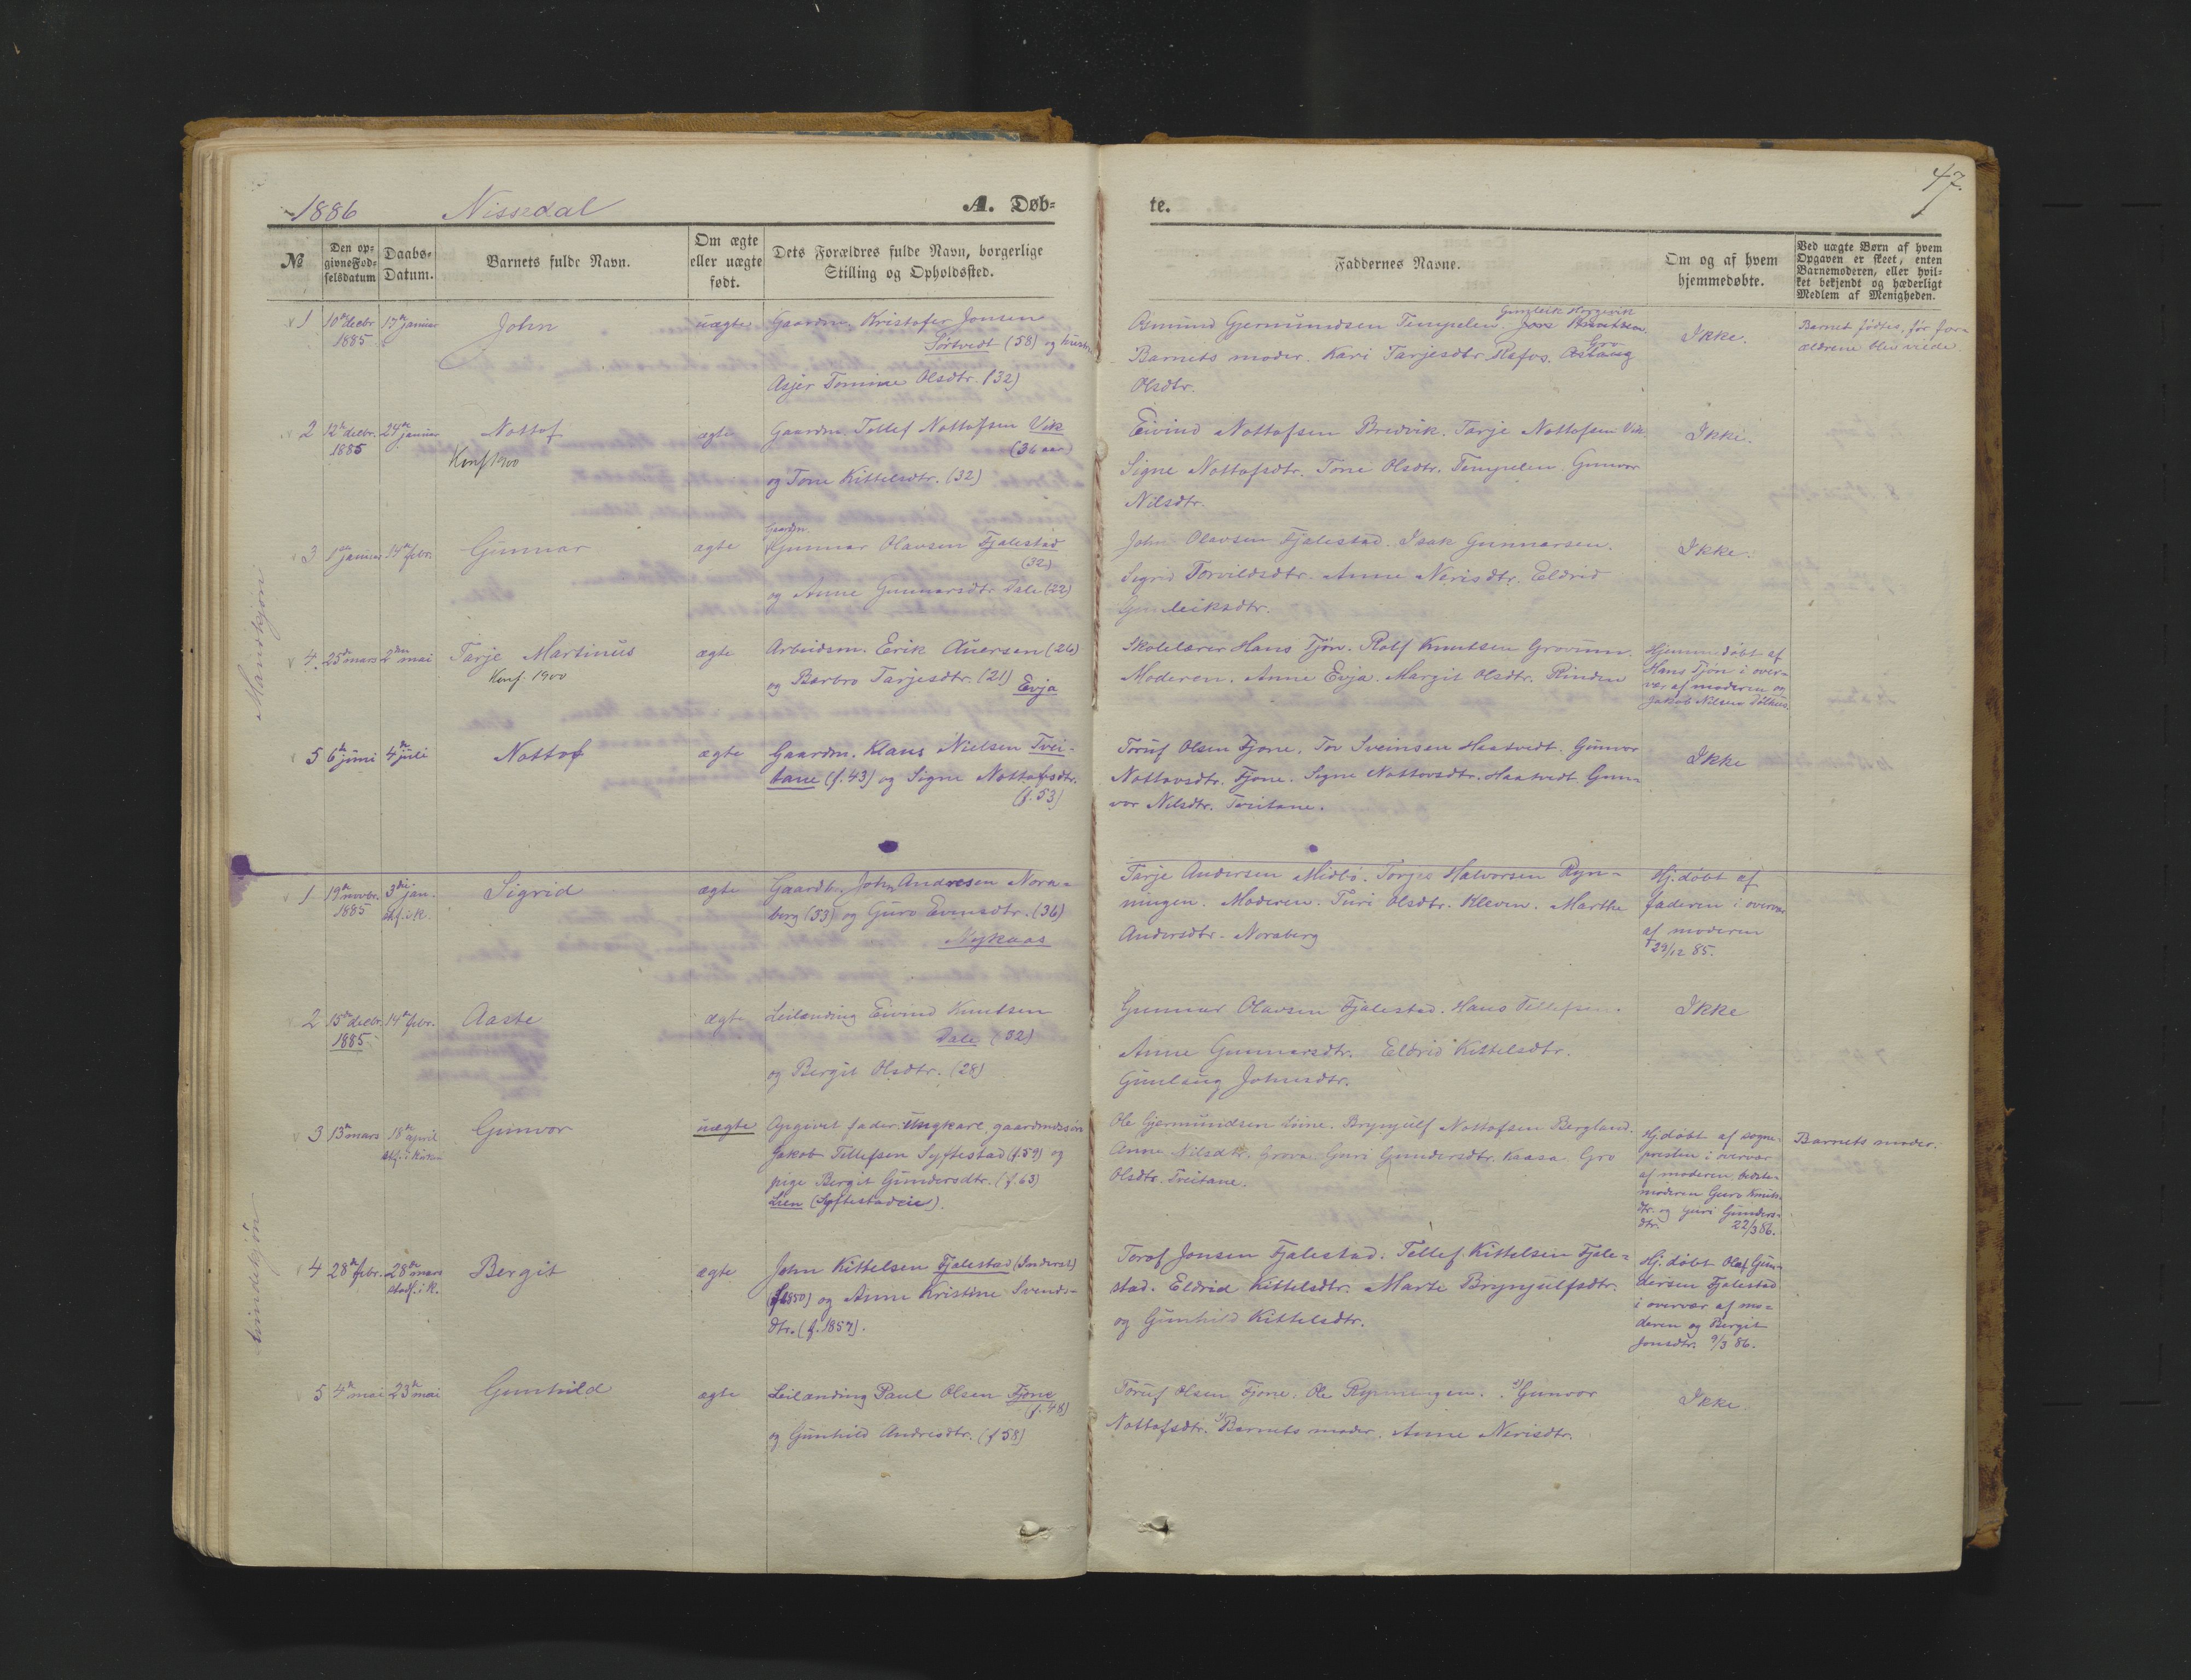 1886 Nissedal A. Døb-
te. 47.
№
Den op-
givne Fød-
selsdatum
Daabs-
Datum.
Barnets fulde Navn.
Om ægte
eller uægte
født.
Dets Forældres fulde Navn, borgerlige
Stilling og Opholdssted.
Faddernes Navne.
Om og af hvem
hjemmedøbte.
Ved uægte Børn af hvem
Opgaven er skeet, enten
Barnemoderen, eller hvil-
ket bekjendt og hæderligt
Medlem af Menigheden.
Mandkjøn
1 10de decbr 17de januar John uægte Gaardm. Kristofer Jonsen
1885 Sørtvedt (58) og hustru
Asjer Tomine Olsdtr. (32)
Gunleik Borgevik
Asmund Gjermundsen Tempelen.
Barnets moder. Kari Tarjesdtr. Rafos. Gro Aslaug
Olsdtr.
Ikke.
Barnet fødtes, før for-
ældrene blev viede
2 12te decbr. 24de januar Nottof ægte Gaardm. Tellef Nottofsen Vik
1885 Konf 1900 (36 )
og Tone Kittelsdtr. (32)
Eivind Nottofsen Bredvik. Tarje Nottofsen Vik.
Signe Nottofsdtr. Tone Olsdtr. Tempelen. Gunvor
Nilsdtr.
Ikke.
3 1ste januar 14de febr. Gunnar ægte Gaardm. Gunnar Olavsen Fjalestad
(32)
og Anne Gunnarsdtr. Dale (22)
John Olavsen Fjalestad. Isak Gunnarsen.
Sigrid Torvildsdtr. Anne Nerisdtr. Eldrid
Gunleiksdtr.
Ikke.
4. 25de mars 2den mai Tarje Martinus ægte Arbeidsm. Erik Auersen (26)
Konf. 1900
og Barbro Tarjesdtr. (21) Evja
Skolelærer Hans Tjøn. Rolf Knutsen Grovum.
Moderen. Anne Evja. Margit Olsdtr. Rinden
Hjemmedøbt af
Hans Tjøn i over-
vær af moderen og
Jakob Nilsen
5 6te juni 4de juli Nottof ægte Gaardm. Klaus Nielsen Tvei-
tane (f. 43) og Signe Nottofsdtr.
(f. 53)
Toruf Olsen Fjone. Tov Sveinsen Haatvedt. Gunvor
Nottovsdtr. Fjone. Signe Nottovsdtr. Haatvedt. Gun-
vor Nilsdtr. Tveitane.
Ikke
kvindekjøn
1 19de novbr. 3die jan. Sigrid ægte Gaardbr. John Andresen Nora-
1885 stf. i k. berg (33) og Guro Evensdtr. (36)
Nykaas
Tarje Andersen Midbø. Torjus Halvorsen Ryn-
ningen. Moderen. Turi Olsdtr. Kleven. Marthe
Andersdtr. Noraberg
Hj. døbt af
faderen i overvær
af moderen
29/12 85.
2 15de decbr. 14de febr. Aaste ægte Leilænding Eivind Knutsen
1885 Dale (32)
og Bergit Olsdtr. (28)
Gunnar Olavsen Fjalestad. Hans Tellefsen.
Anne Gunnarsdtr. Eldrid Kittelsdtr.
Gunlaug Johnsdtr.
Ikke
3 13de mars 18de april Gunvor uægte Opgivet fader: Ungkarl, gaardmdssøn
stf. i kirken Jakob Tellefsen Syftestad (f. 59) og
pige Bergit Gundersdtr. (f. 63)
Lien (Syftestadeie).
Ole Gjermundsen Brynjulf Nottofsen Bergland.
Anne Nilsdtr. Guri Gundersdtr. Kaasa. Gro
Olsdtr. Tveitane.
Hj. døbt af sogne-
presten i overvær
af moderen, bedste-
moderen Guro Knuts-
dtr. og Guri Gunders-
dtr. 22/3 86.
Barnets moder.
4 28de febr. 28de mars Bergit ægte John Kittelsen Fjalestad (Inderst)
stadf. i k. (f. 1850) og Anne Kristine Svends-
dtr. (f. 1857).
Torof Jonsen Fjalestad. Tellef Kittelsen Fjale-
stad. Eldrid Kittelsdtr. Marte Brynjulfsdtr.
og Gunhild Kittelsdtr.
Hj. døbt Olaf Gun-
dersen Fjalestad
i overvær af mo-
deren og Bergit
Jonsdtr. 9/3 86.
5 4de mai 23de mai Gunhild ægte Leilænding Paul Olsen Fjone
(f. 48)
og Gunhild Andresdtr. (f 58)
Toruf Olsen Fjone. Ole Rynningen. 2) Gunvor
Nottofsdtr. 1) Barnets moder. Anne Nerisdtr.
Ikke.